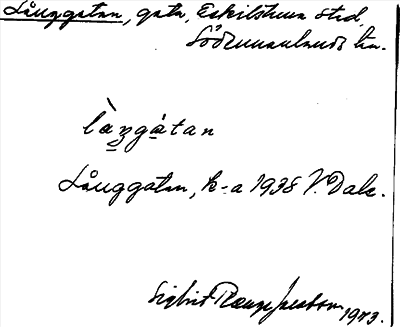 Långgatan, gata, Eskilstuna stad,
Södermanlands län.
là̱ŋgá̱tan
Långgatan, k-a 1938 V. Dale.
Sigbrit 1973.